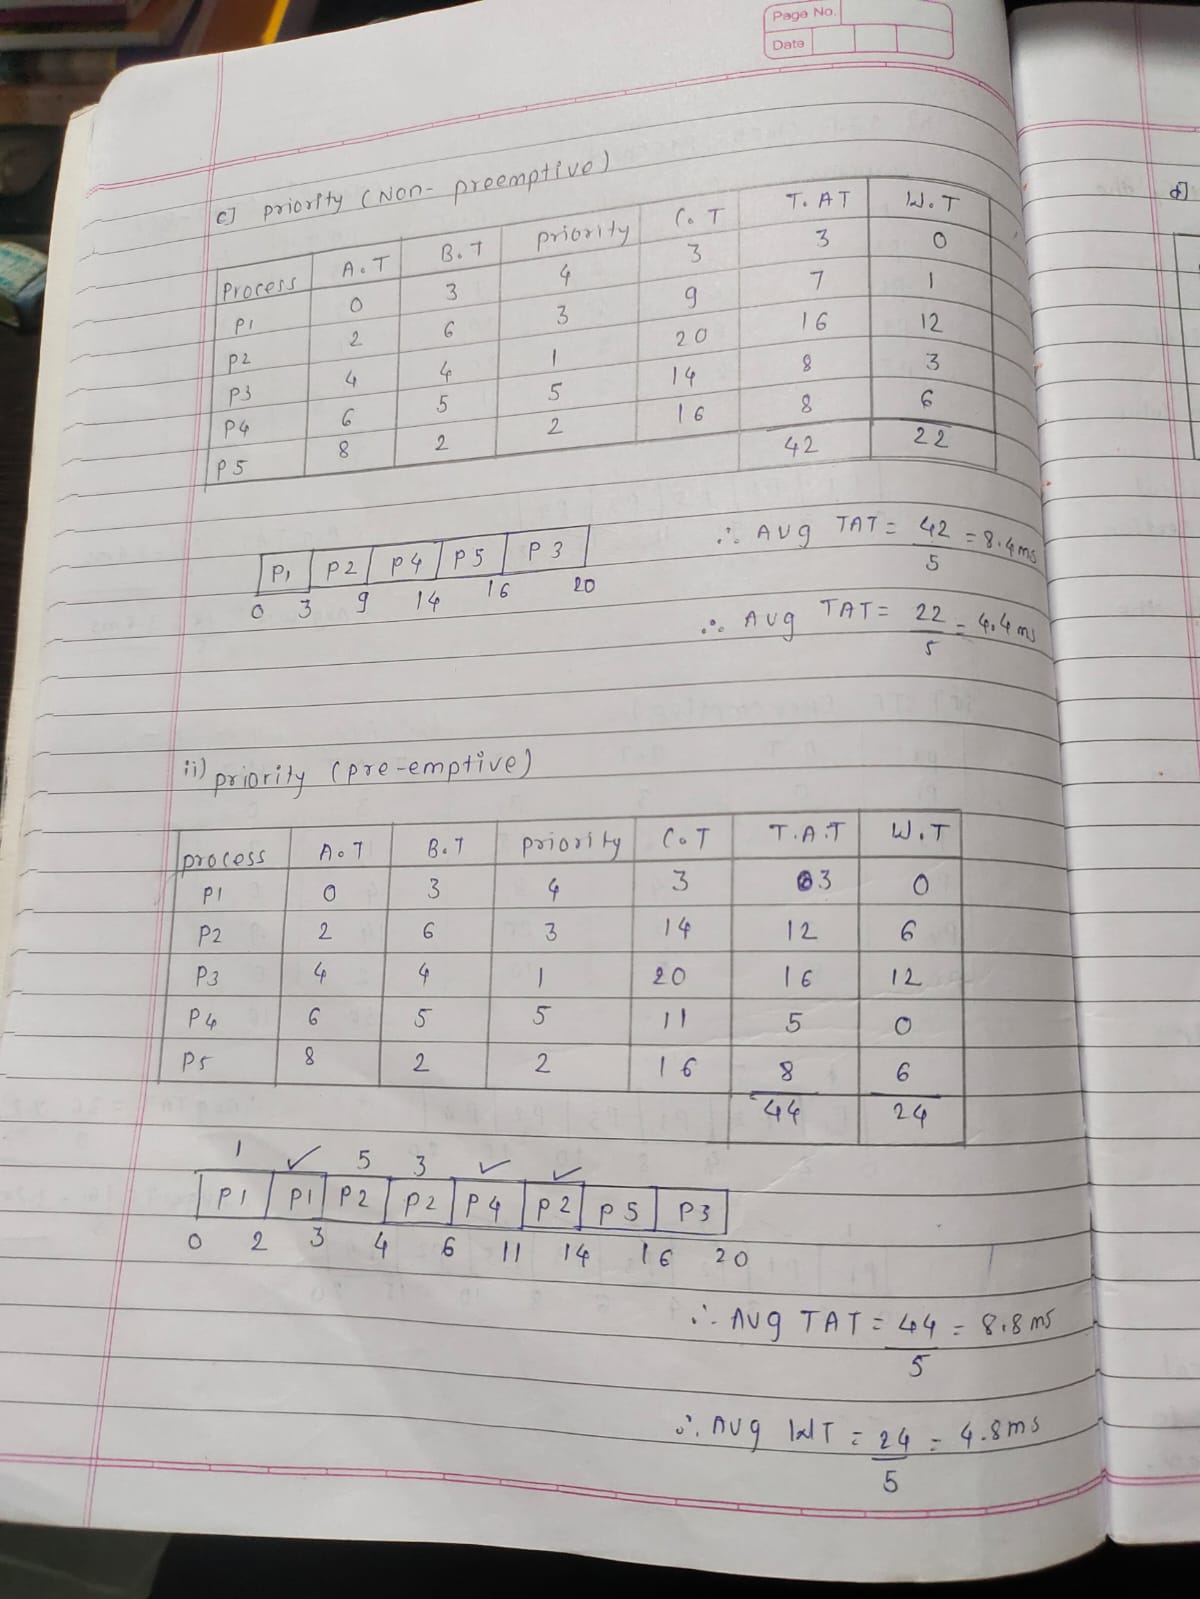 Page No.
Date
c] priority (Non-preemptive)
Process A.T B.T priority C.T T.AT W.T
P1 0 3 4 3 3 0
P2 2 6 3 9 7 1
P3 4 4 1 20 16 12
P4 6 5 5 14 8 3
P5 8 2 2 16 8 6
42 22
P1 P2 P4 P5 P3
0 3 9 14 16 20
∴ Avg TAT = 42/5 = 8.4ms
∴ Avg TAT = 22/5 = 4.4ms
ii) priority (pre-emptive)
process A.T B.T priority C.T T.A.T W.T
P1 0 3 4 3 3 0
P2 2 6 3 14 12 6
P3 4 4 1 20 16 12
P4 6 5 5 11 5 0
P5 8 2 2 16 8 6
44 24
1 ✓ 5 3 ✓ ✓
P1 P1 P2 P2 P4 P2 P5 P3
0 2 3 4 6 11 14 16 20
∴ Avg TAT = 44/5 = 8.8ms
∴ Avg WT = 24/5 = 4.8ms
d]